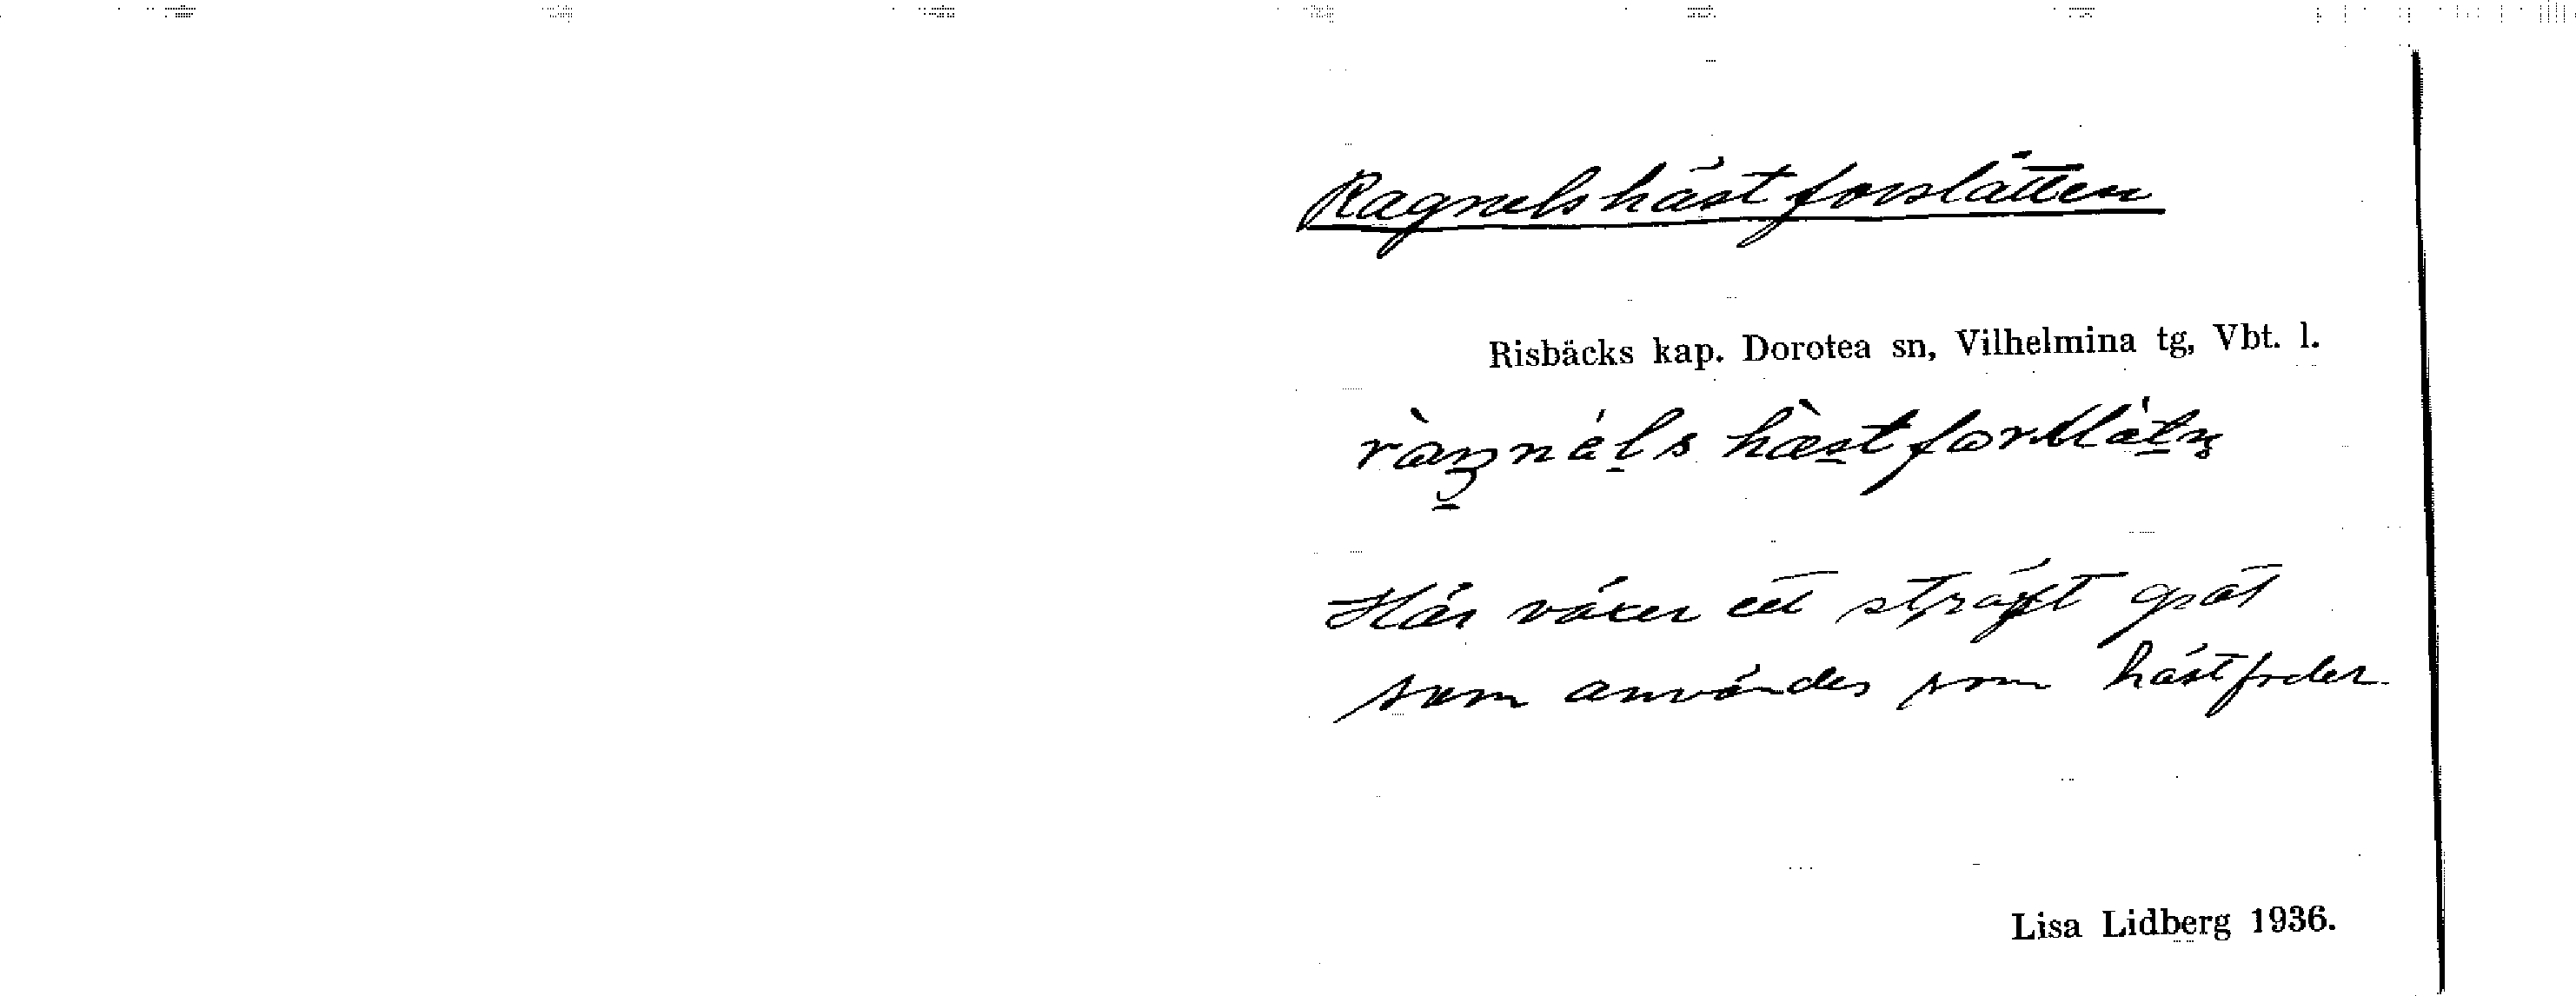 Ragnelshästforslåtten
Risbäcks kap. Dorotea sn, Vilhelmina tg, Vbt. l.
Här växer ett sträft gräs
som användes som hästfoder
Lisa Lidberg 1936.